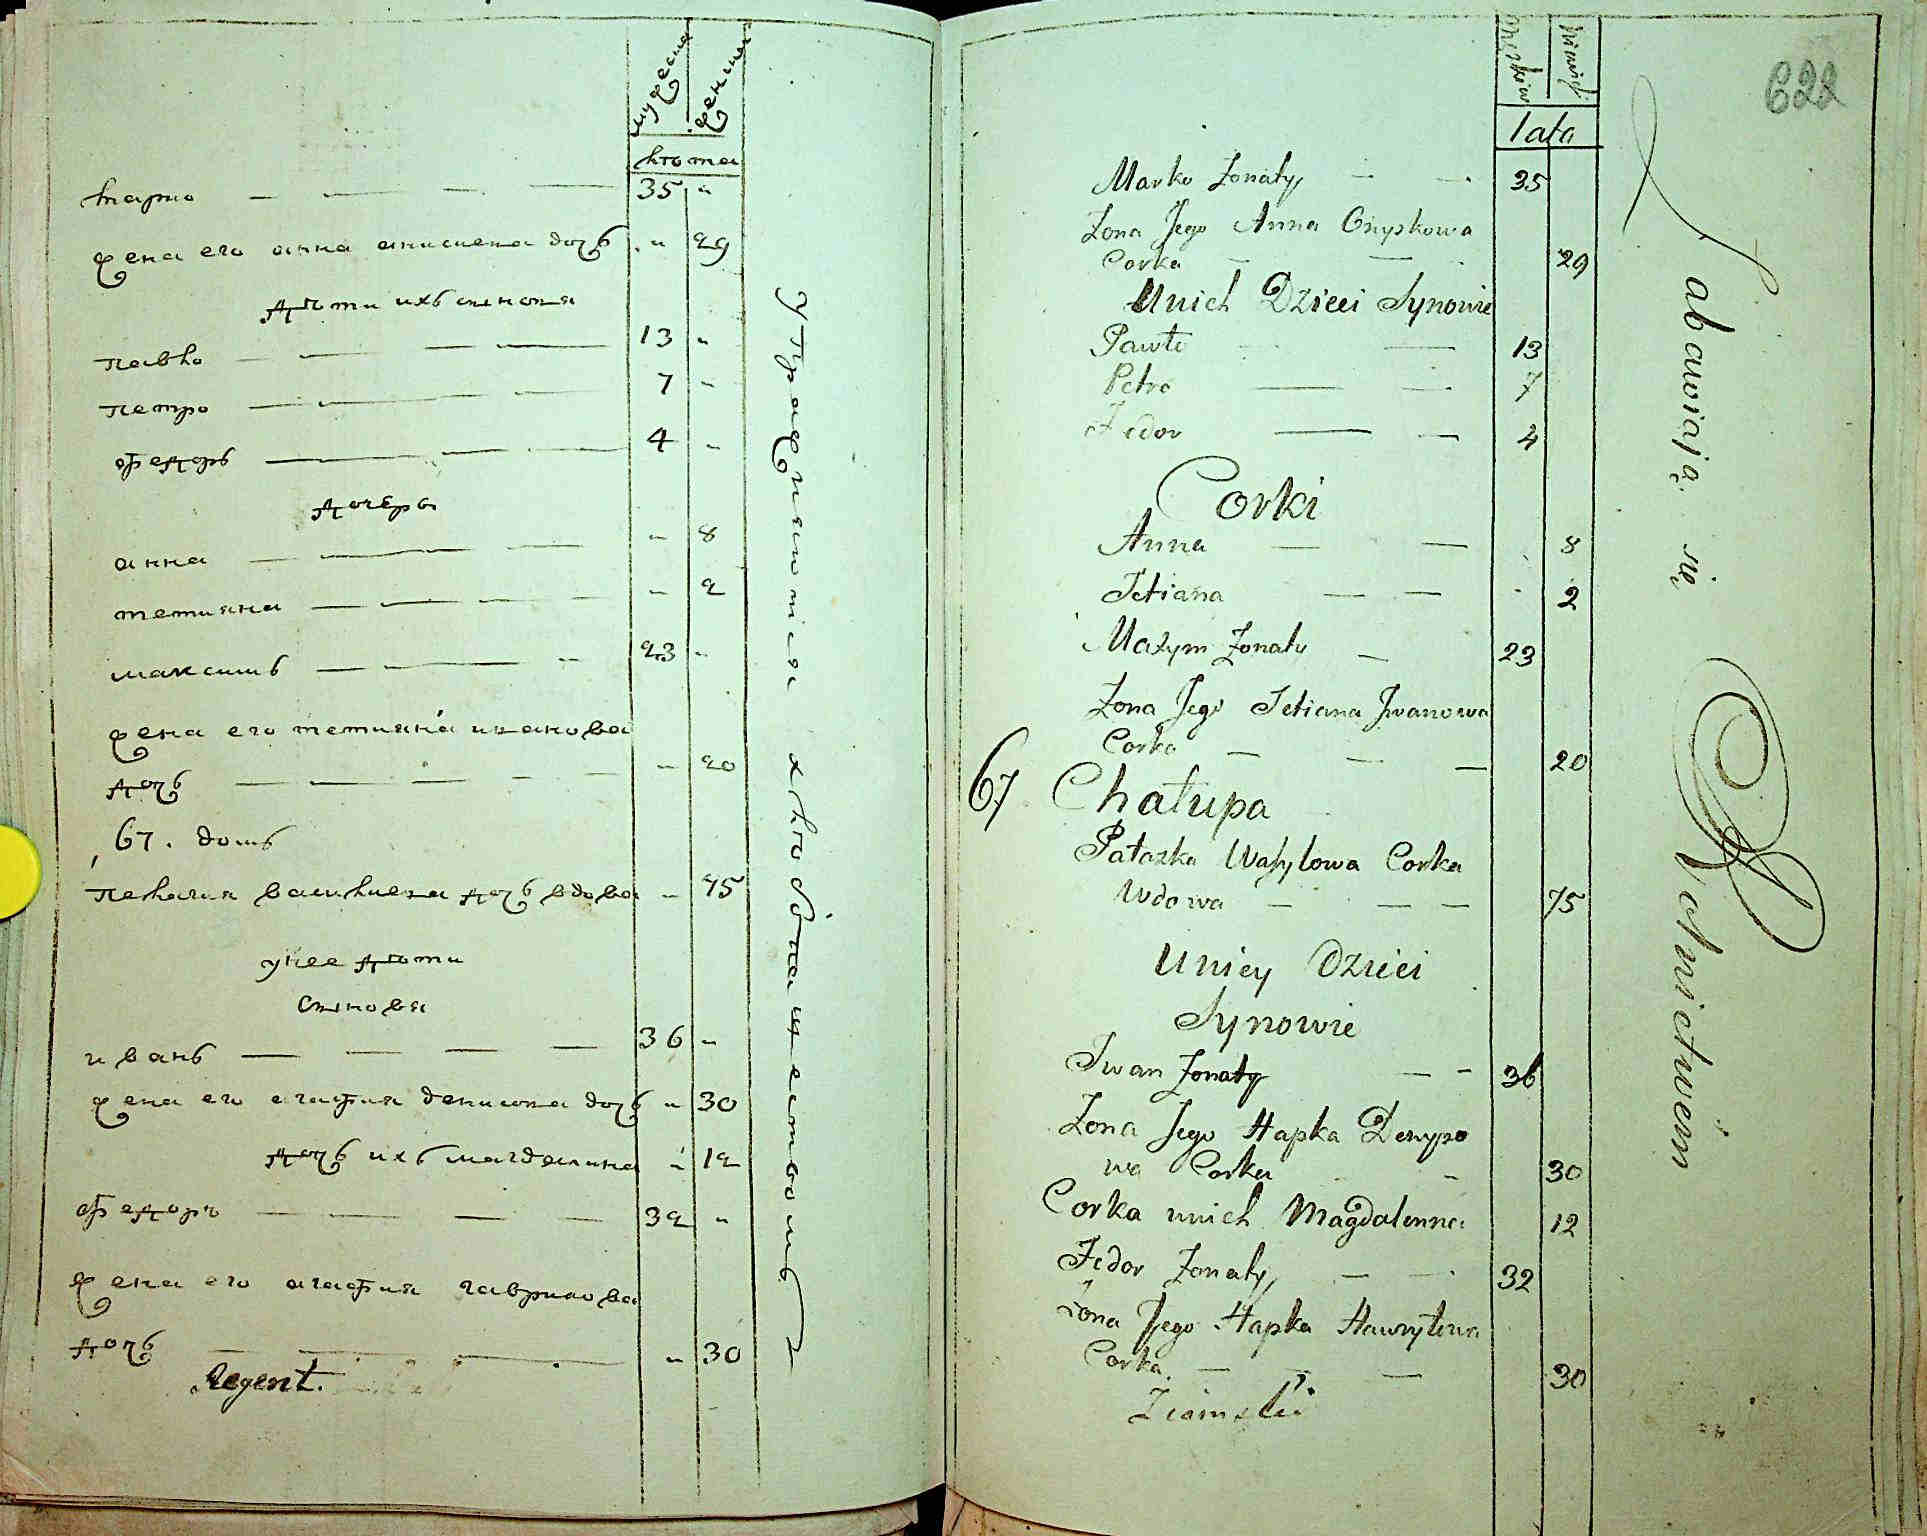 мужеска
женска
лѣта
марко — — — — 35 "
жена его анна анисиева дочь " 29
дѣти ихъ сыновя
павло — — — — 13 "
петро — — — — 7 "
федоръ — — — — 4 "
дочеры
анна — — — " 8
тетияна — — — — " 2
максимъ — — — 23 "
жена его тетияна иванова
дочь — — — — " 20
67. домъ
пелагия василиева дочь вдова " 75
у нее дѣти
сыновя
иванъ — — — — 36 "
жена его агафия денисова дочь " 30
дочь ихъ магдалина " 12
федоръ — — — — 32 "
жена его агафия гаврилова
дочь — — — " 30
Regent.
упражняются хлебопашествомъ
622
męskie
lata
Marko Żonaty — — 35
Żona Jego Anna Onyskowa
Corka — — 29
Unich Dzieci Synowie
Pawło — — 13
Petro — — 7
Fedor — — 4
Corki
Anna — — 8
Tetiana — — 2
Maxym Żonaty — 23
Żona Jego Tetiana Jwanowa
Corka — — — 20
67 Chałupa
Pałazka Wasylowa Corka
Wdowa — — — 75
Uniey Dzieci
Synowie
Iwan Żonaty — — 36
Żona Jego Hapka Denyso
wa Corka — 30
Corka unich Magdalenna 12
Fedor Żonaty — — 32
Żona Jego Hapka Hawryłowa
Corka — — — 30
Zabawiają się Rolnictwem